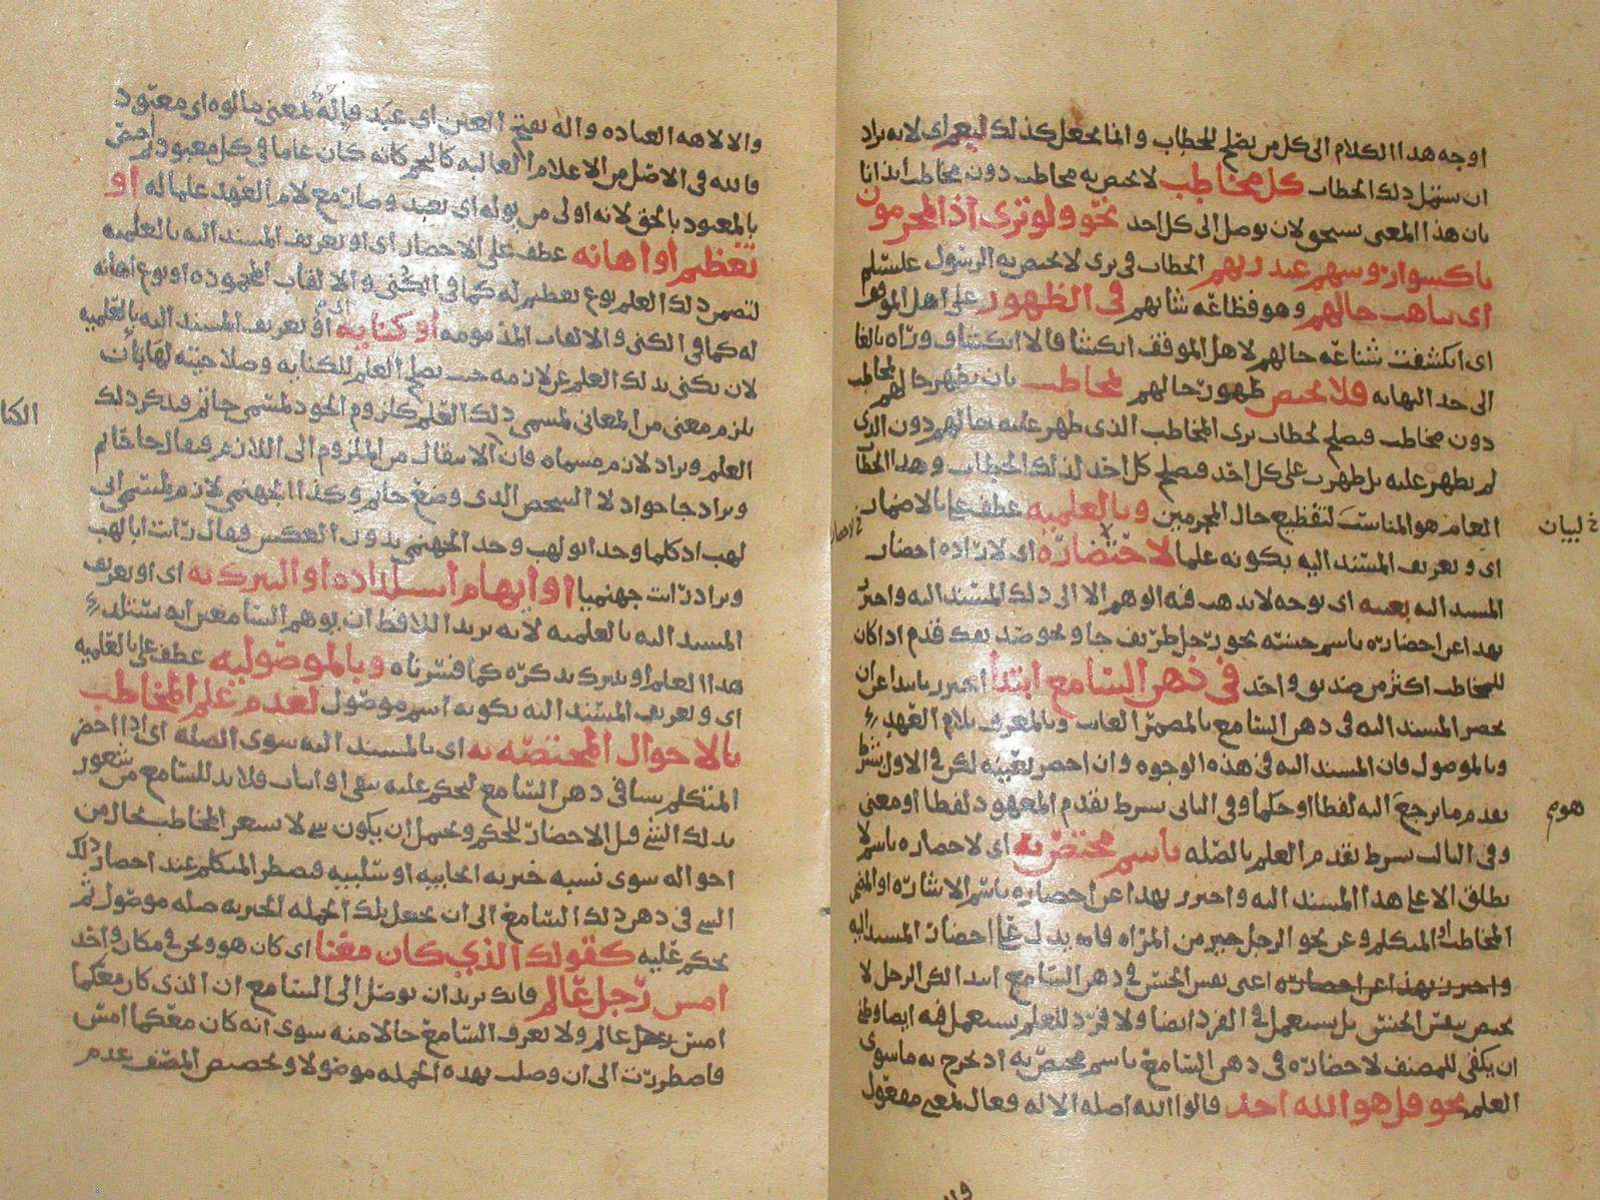 اوجه هذا الكلام الى كل من يصلح للخطاب وانما يجعل كذلك ليعم اى لانه يراد
ان يشمل ذلك الخطاب كل مخاطب لا يختص به مخاطب دون مخاطب ايذانا
بان هذا المعنى يستحق لان يوصل الى كل احد نحو ولو ترى اذ المجرمون
ناكسوا رؤسهم عند ربهم الخطاب فى ترى لا يختص به الرسول
اى تناهت حالهم وهو فظاعة شانهم فى الظهور على اهل الموقف
اى انكشفت شناعة حالهم لاهل الموقف انكشافا لا انكشاف وراه بالغا
الى حد النهاية فلا يختص ظهور حالهم بمخاطب بان يظهر حالهم لمخاطب
دون مخاطب فيصلح لخطاب ترى المخاطب الذى ظهر عليه حالهم دون الذى
لم يظهر عليه بل ظهرت على كل احد فيصلح كل احد لذلك الخطاب وهذا الخطاب
العام هو المناسب لتفظيع حال المجرمين وبالعلمية عطف على بالاضمار
اى وتعريف المسند اليه بكونه علما لاحضاره اى لارادة احضار
المسند اليه بعينه اى بوجه لا يذهب فيه الوهم الا الى ذلك المسند اليه واحترز
بهذا عن احضاره باسم جنسه نحو رجل ظريف جاء ونحو صديقك قدم اذا كان
للمخاطب اكثر من صديق واحد فى ذهن السامع ابتداء احترز بابتداء عن ان
يحضر المسند اليه فى ذهن السامع بالمضمر الغايب وبالمعرف بلام العهد
وبالموصول فان المسند اليه فى هذه الوجوه وان احضر بعينه لكن فى الاول بشرط
تقدم ما يرجع اليه لفظا او حكما وفى الثانى بشرط تقدم المعهود لفظا او معنى
وفى الثالث بشرط تقدم العلم بالصلة باسم مختص به اى لاحضاره باسم لا
يطلق الا على هذا المسند اليه واحترز بهذا عن احضاره باسم الاشارة او المضمر
المخاطب او المتكلم وعن نحو الرجل خير من المراة فانه يدل على احضار المسند اليه
واحترز بهذا عن احضاره اعنى نفس الجنس فى ذهن السامع ابتداء لكن الرجل لا
يختص بنفس الجنس بل يستعمل فى الفرد ايضا ولا فرد للعلم يستعمل فيه ايضا
ان يكفى للمصنف لاحضاره فى ذهن السامع باسم مختص به اذ يخرج به ما سوى
العلم نحو قل هو الله احد قالوا الله اصله الاله فعال بمعنى مفعول
لبيان
والالاهة العبادة واله بفتح العين اى عبد فاله بمعنى مالوه اى معبود
فالله فى الاصل من الاعلام الغالبة كالنجم كانه كان عاما فى كل معبود ثم اختص
بالمعبود بالحق لانه اولى من يوله اى يعبد وصار مع لام العهد علما له او
تعظيم او اهانة عطف على الاحضار اى او تعريف المسند اليه بالعلمية
لتضمن ذلك العلم نوع تعظيم له كما فى الكنى والالقاب المحمودة او نوع اهانة
له كما فى الكنى والالقاب المذمومة او كناية اى او تعريف المسند اليه بالعلمية
لان يكنى بذلك العلم عن لازمه حيث يصلح العلم للكناية وصلاحيته لها بان
يلزم معنى من المعانى لمسمى ذلك العلم كلزوم الجود لمسمى حاتم فيذكر ذلك
العلم ويراد لازم مسماه فان الانتقال من الملزوم الى اللازم فيقال جا حاتم
ويراد جا جواد لا الشخص الذى وضع حاتم وكذا الجهنمى لازم لمسمى ابى
لهب اذ كلما وجد ابو لهب وجد الجهنمى بدون العكس فيقال رايت ابا لهب
ويراد رايت جهنميا او ايهام استلذاذه او التبرك به اى او تعريف
المسند اليه بالعلمية لانه يريد اللافظ ان يوهم السامعين انه يستلذ
هذا العلم او يتبرك بذكره كما فسرناه وبالموصولية عطف على بالعلمية
اى وتعريف المسند اليه بكونه اسم موصول لعدم علم المخاطب
بالاحوال المختصة به اى بالمسند اليه سوى الصلة اى اذا احضر
المتكلم شيا فى ذهن السامع ليحكم عليه بنفى او اثبات فلا بد للسامع من شعور
بذلك الشئ قبل الاحضار للحكم ويحتمل ان يكون شئ لا يشعر المخاطب بحال من
احواله سوى نسبة خبرية ايجابية او سلبية فيضطر المتكلم عند احضار ذلك
الشئ فى ذهن ذلك السامع الى ان يجعل تلك الجملة الخبرية صلة موصول ثم
يحكم عليه كقولك الذي كان معنا اى كان هو ونحن فى مكان واحد
امس رجل عالم فانك تريد ان توصل الى السامع ان الذى كان معكما
امس رجل عالم ولا يعرف السامع حالا منه سوى انه كان معكما امس
فاضطررت الى ان وصلت بهذه الجملة موصولا وتخصيص المصنف عدم